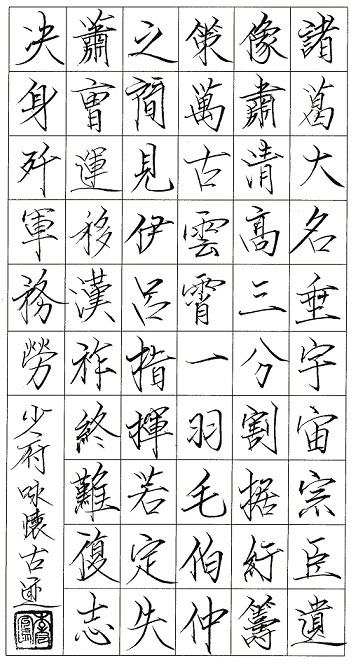 諸葛大名垂宇宙宗臣遺
像肅清高三分割據紆籌
策萬古雲霄一羽毛伯仲
之間見伊呂指揮若定失
蕭曹運移漢祚終難復志
决身歼軍務勞
少府咏懷古迹